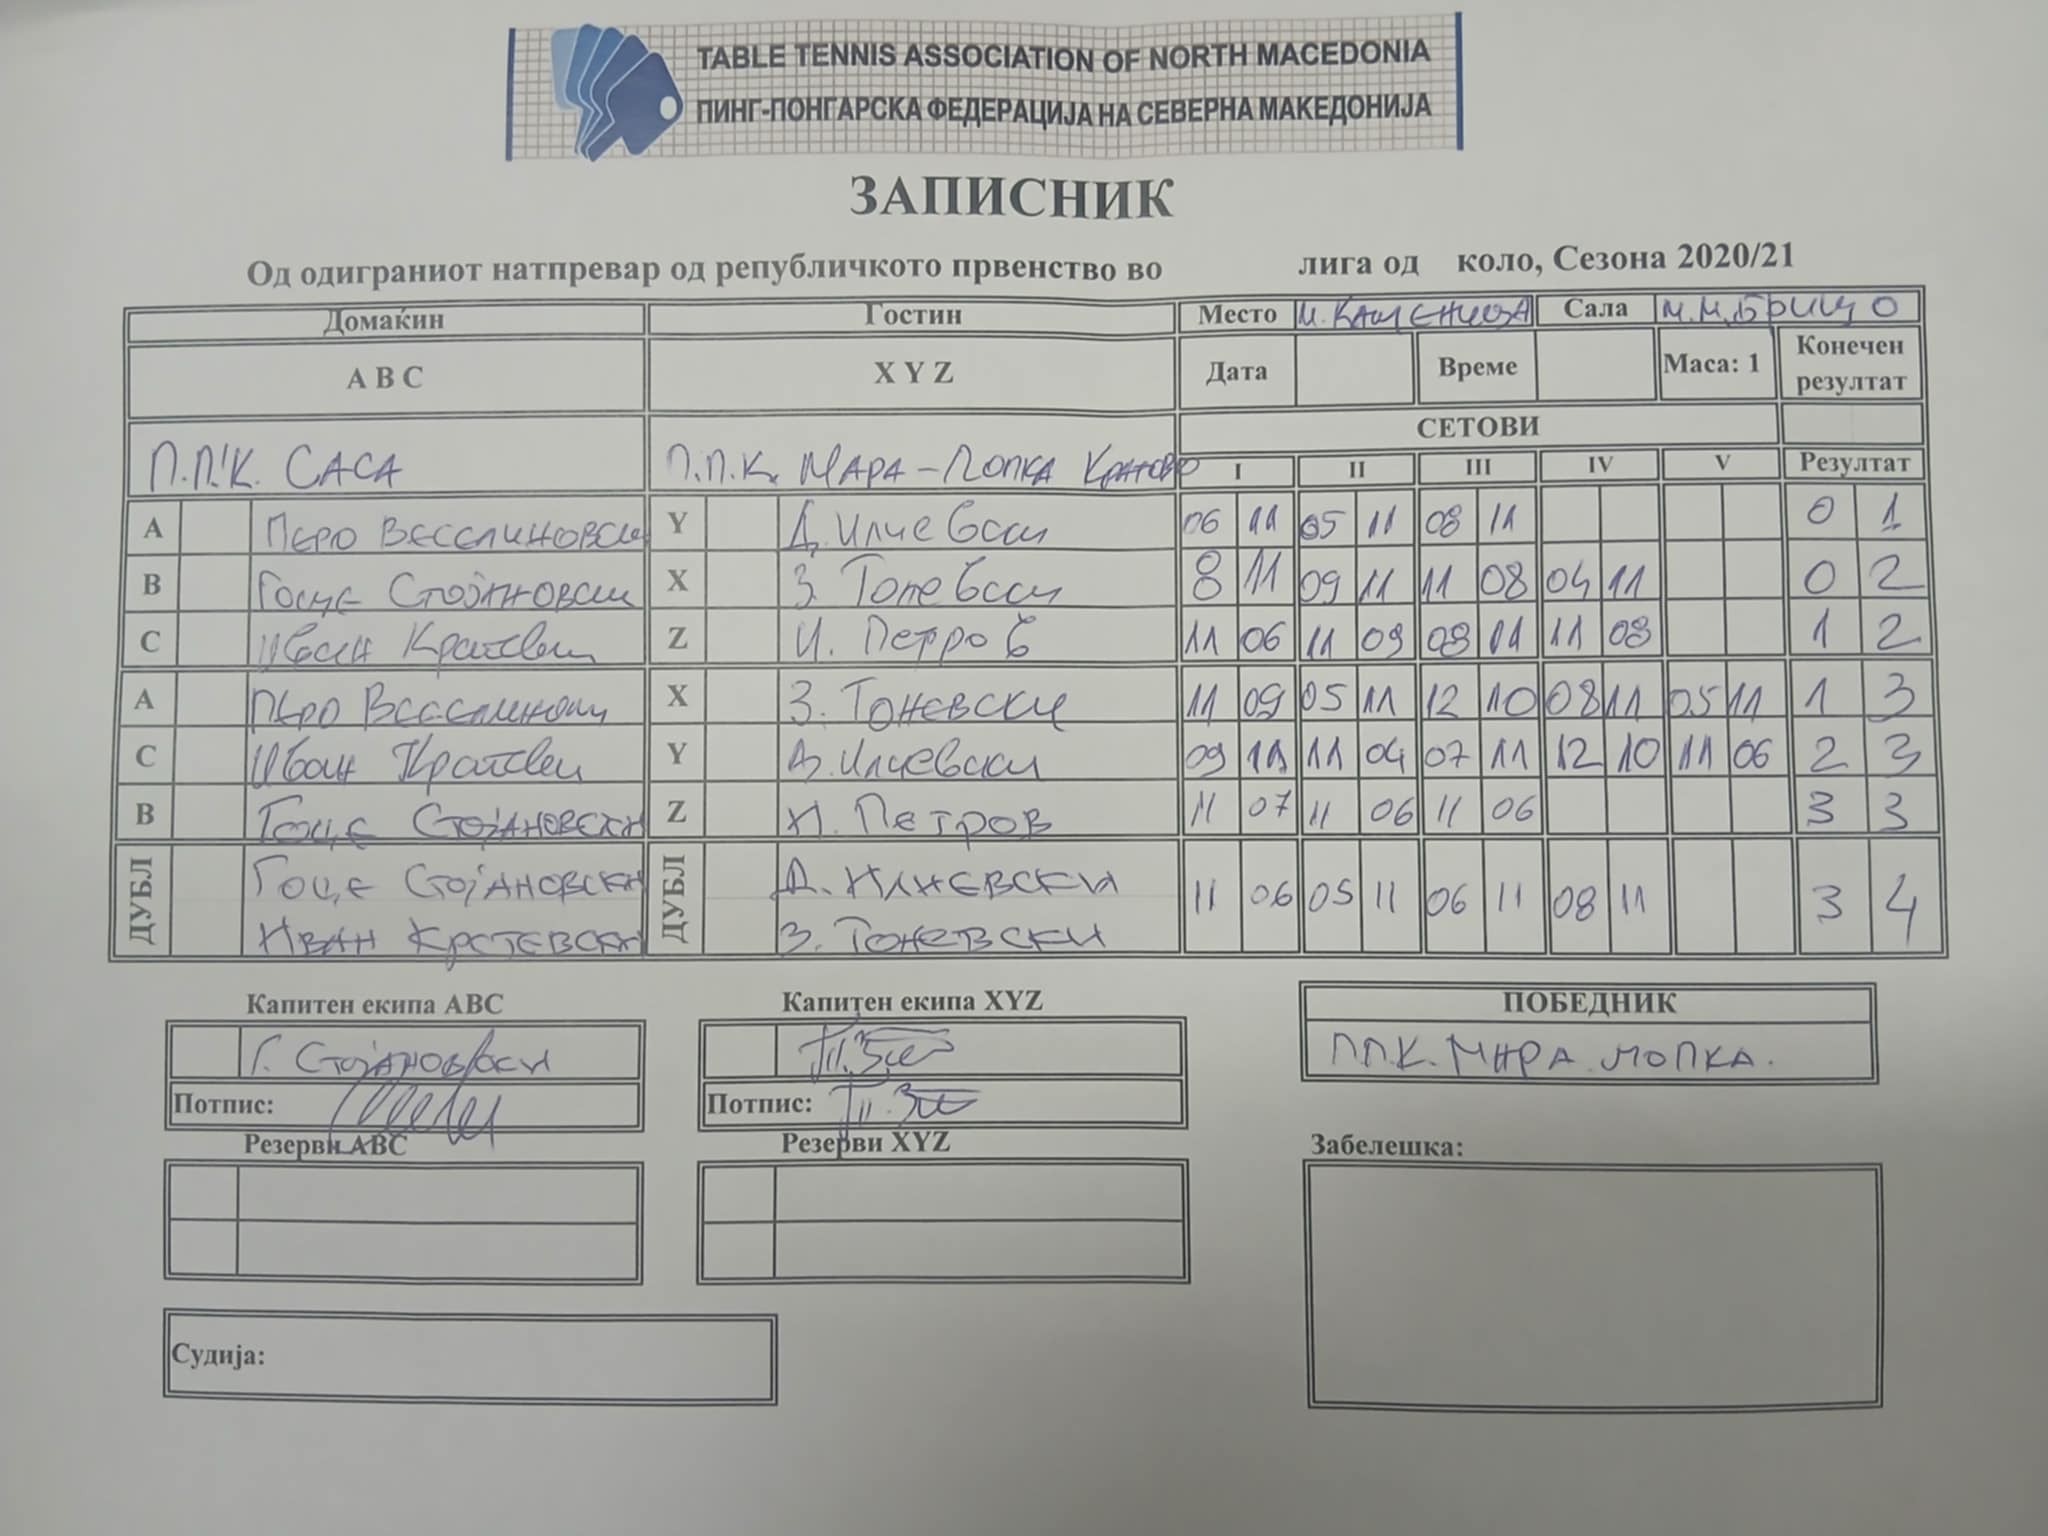 TABLE TENNIS ASSOCIATION OF NORTH MACEDONIA
ПИНГ-ПОНГАРСКА ФЕДЕРАЦИЈА НА СЕВЕРНА МАКЕДОНИЈА
ЗАПИСНИК
Од одиграниот натпревар од републичкото првенство во лига од коло, Сезона 2020/21
Домаќин Гостин Место М. КАМЕНИЦА Сала
A B C X Y Z Дата Време Маса: 1 Конечен резултат
СЕТОВИ
П.П.К. САСА П.П.К. МАРА-ЛОПКА I II III IV V Резултат
A ПЕРО ВЕСЕЛИНОВСКИ Y Д. Илиевски 06 11 05 11 08 11 0 1
B Гоце Стојановски X З. Тоневски 8 11 09 11 11 08 04 11 0 2
C Иван Крстевски Z И. Петров 11 06 11 09 08 11 11 08 1 2
A ПЕРО X З. Тоневски 11 09 05 11 12 10 08 11 05 11 1 3
C Иван Крстевски Y Д. Илиевски 09 11 11 04 07 11 12 10 11 06 2 3
B Гоце СТОЈАНОВСКИ Z И. ПЕТРОВ 11 07 11 06 11 06 3 3
ДУБЛ ГОЦЕ СТОЈАНОВСКИ ДУБЛ Д. ИЛИЕВСКИ 11 06 05 11 06 11 08 11 3 4
ИВАН КРСТЕВСКИ З. ТОНЕВСКИ
Капитен екипа ABC Капитен екипа XYZ ПОБЕДНИК
Г. Стојановски П.П.К. МАРА ЛОПКА.
Потпис: Потпис:
Резерви ABC Резерви XYZ Забелешка:
Судија: